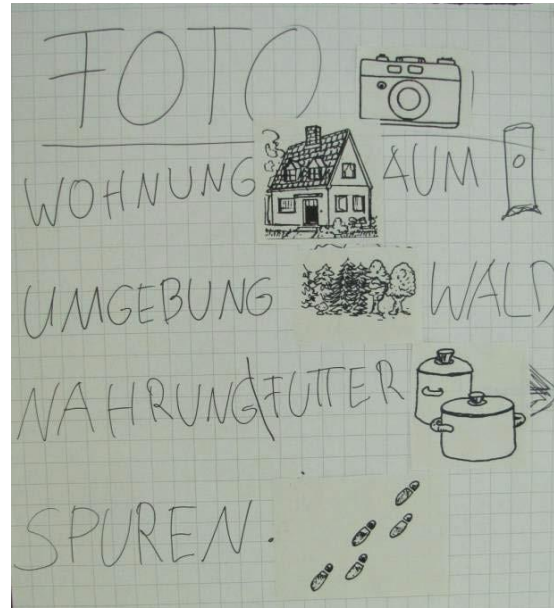 FOTO
WOHNUNG AUM
UMGEBUNG WALD
NAHRUNG\FUTTER
SPUREN.